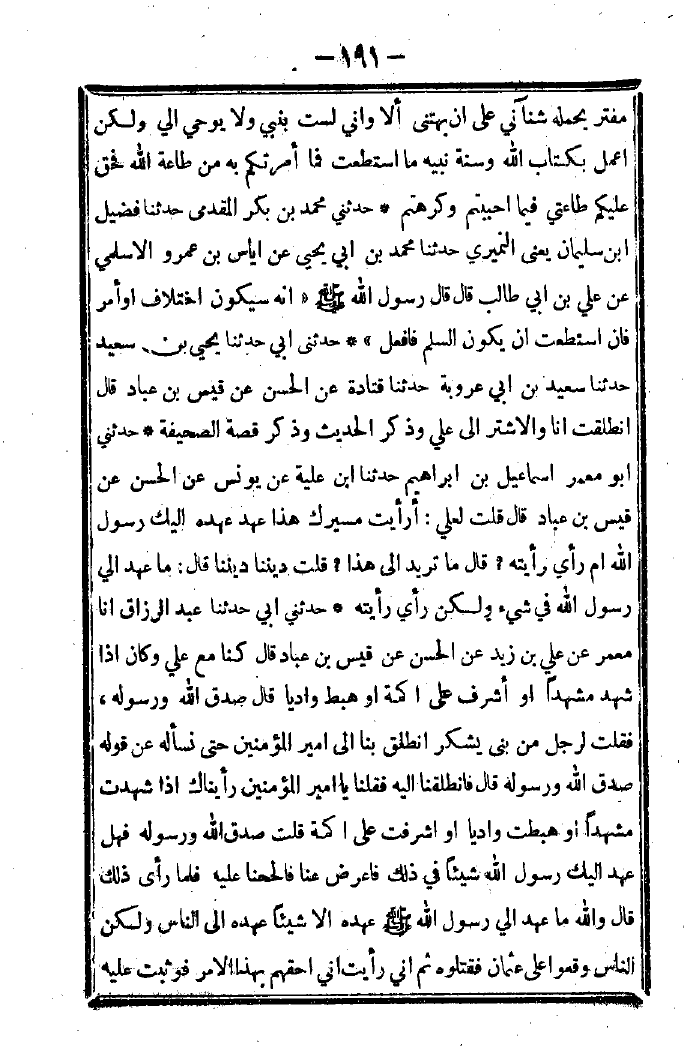 - ١٩١ -
مفتر يحمله شنآني على ان يبهتنى ألا واني لست بنبي ولا يوحي الي ولكن
اعمل بكتاب الله وسنة نبيه ما استطعت فما أمرتكم به من طاعة الله فحق
عليكم طاعتي فيما احببتم وكرهتم * حدثني محمد بن بكر المقدمى حدثنا فضيل
ابن سليمان يعنى النميري حدثنا محمد بن ابي يحيى عن اياس بن عمرو الاسلمي
عن علي بن ابي طالب قال قال رسول الله ﷺ « انه سيكون اختلاف او أمر
فان استطعت ان يكون السلم فافعل » * حدثنى ابي حدثنا يحيى بن سعيد
حدثنا سعيد بن ابي عروبة حدثنا قتادة عن الحسن عن قيس بن عباد قال
انطلقت انا والاشتر الى علي وذكر الحديث وذكر قصة الصحيفة * حدثني
ابو معمر اسماعيل بن ابراهيم حدثنا ابن علية عن يونس عن الحسن عن
قيس بن عباد قال قلت لعلي : أرأيت مسيرك هذا عهد عهده اليك رسول
الله ام رأي رأيته ? قال ما تريد الى هذا ? قلت ديننا ديننا قال : ما عهد الي
رسول الله في شيء ولكن رأي رأيته * حدثني ابي حدثنا عبد الرزاق انا
معمر عن علي بن زيد عن الحسن عن قيس بن عباد قال كنا مع علي وكان اذا
شهد مشهداً او أشرف على اكمة او هبط واديا قال صدق الله ورسوله ،
فقلت لرجل من بنى يشكر انطلق بنا الى امير المؤمنين حتى نسأله عن قوله
صدق الله ورسوله قال فانطلقنا اليه فقلنا يا امير المؤمنين رأيناك اذا شهدت
مشهداً او هبطت واديا او اشرفت على اكمة قلت صدق الله ورسوله فهل
عهد اليك رسول الله شيئاً في ذلك فاعرض عنا فالححنا عليه فلما رأى ذلك
قال والله ما عهد الي رسول الله ﷺ عهده الا شيئاً عهده الى الناس ولكن
الناس وقعوا على عثمان فقتلوه ثم اني رأيت اني احقهم بهذا الامر فوثبت عليه